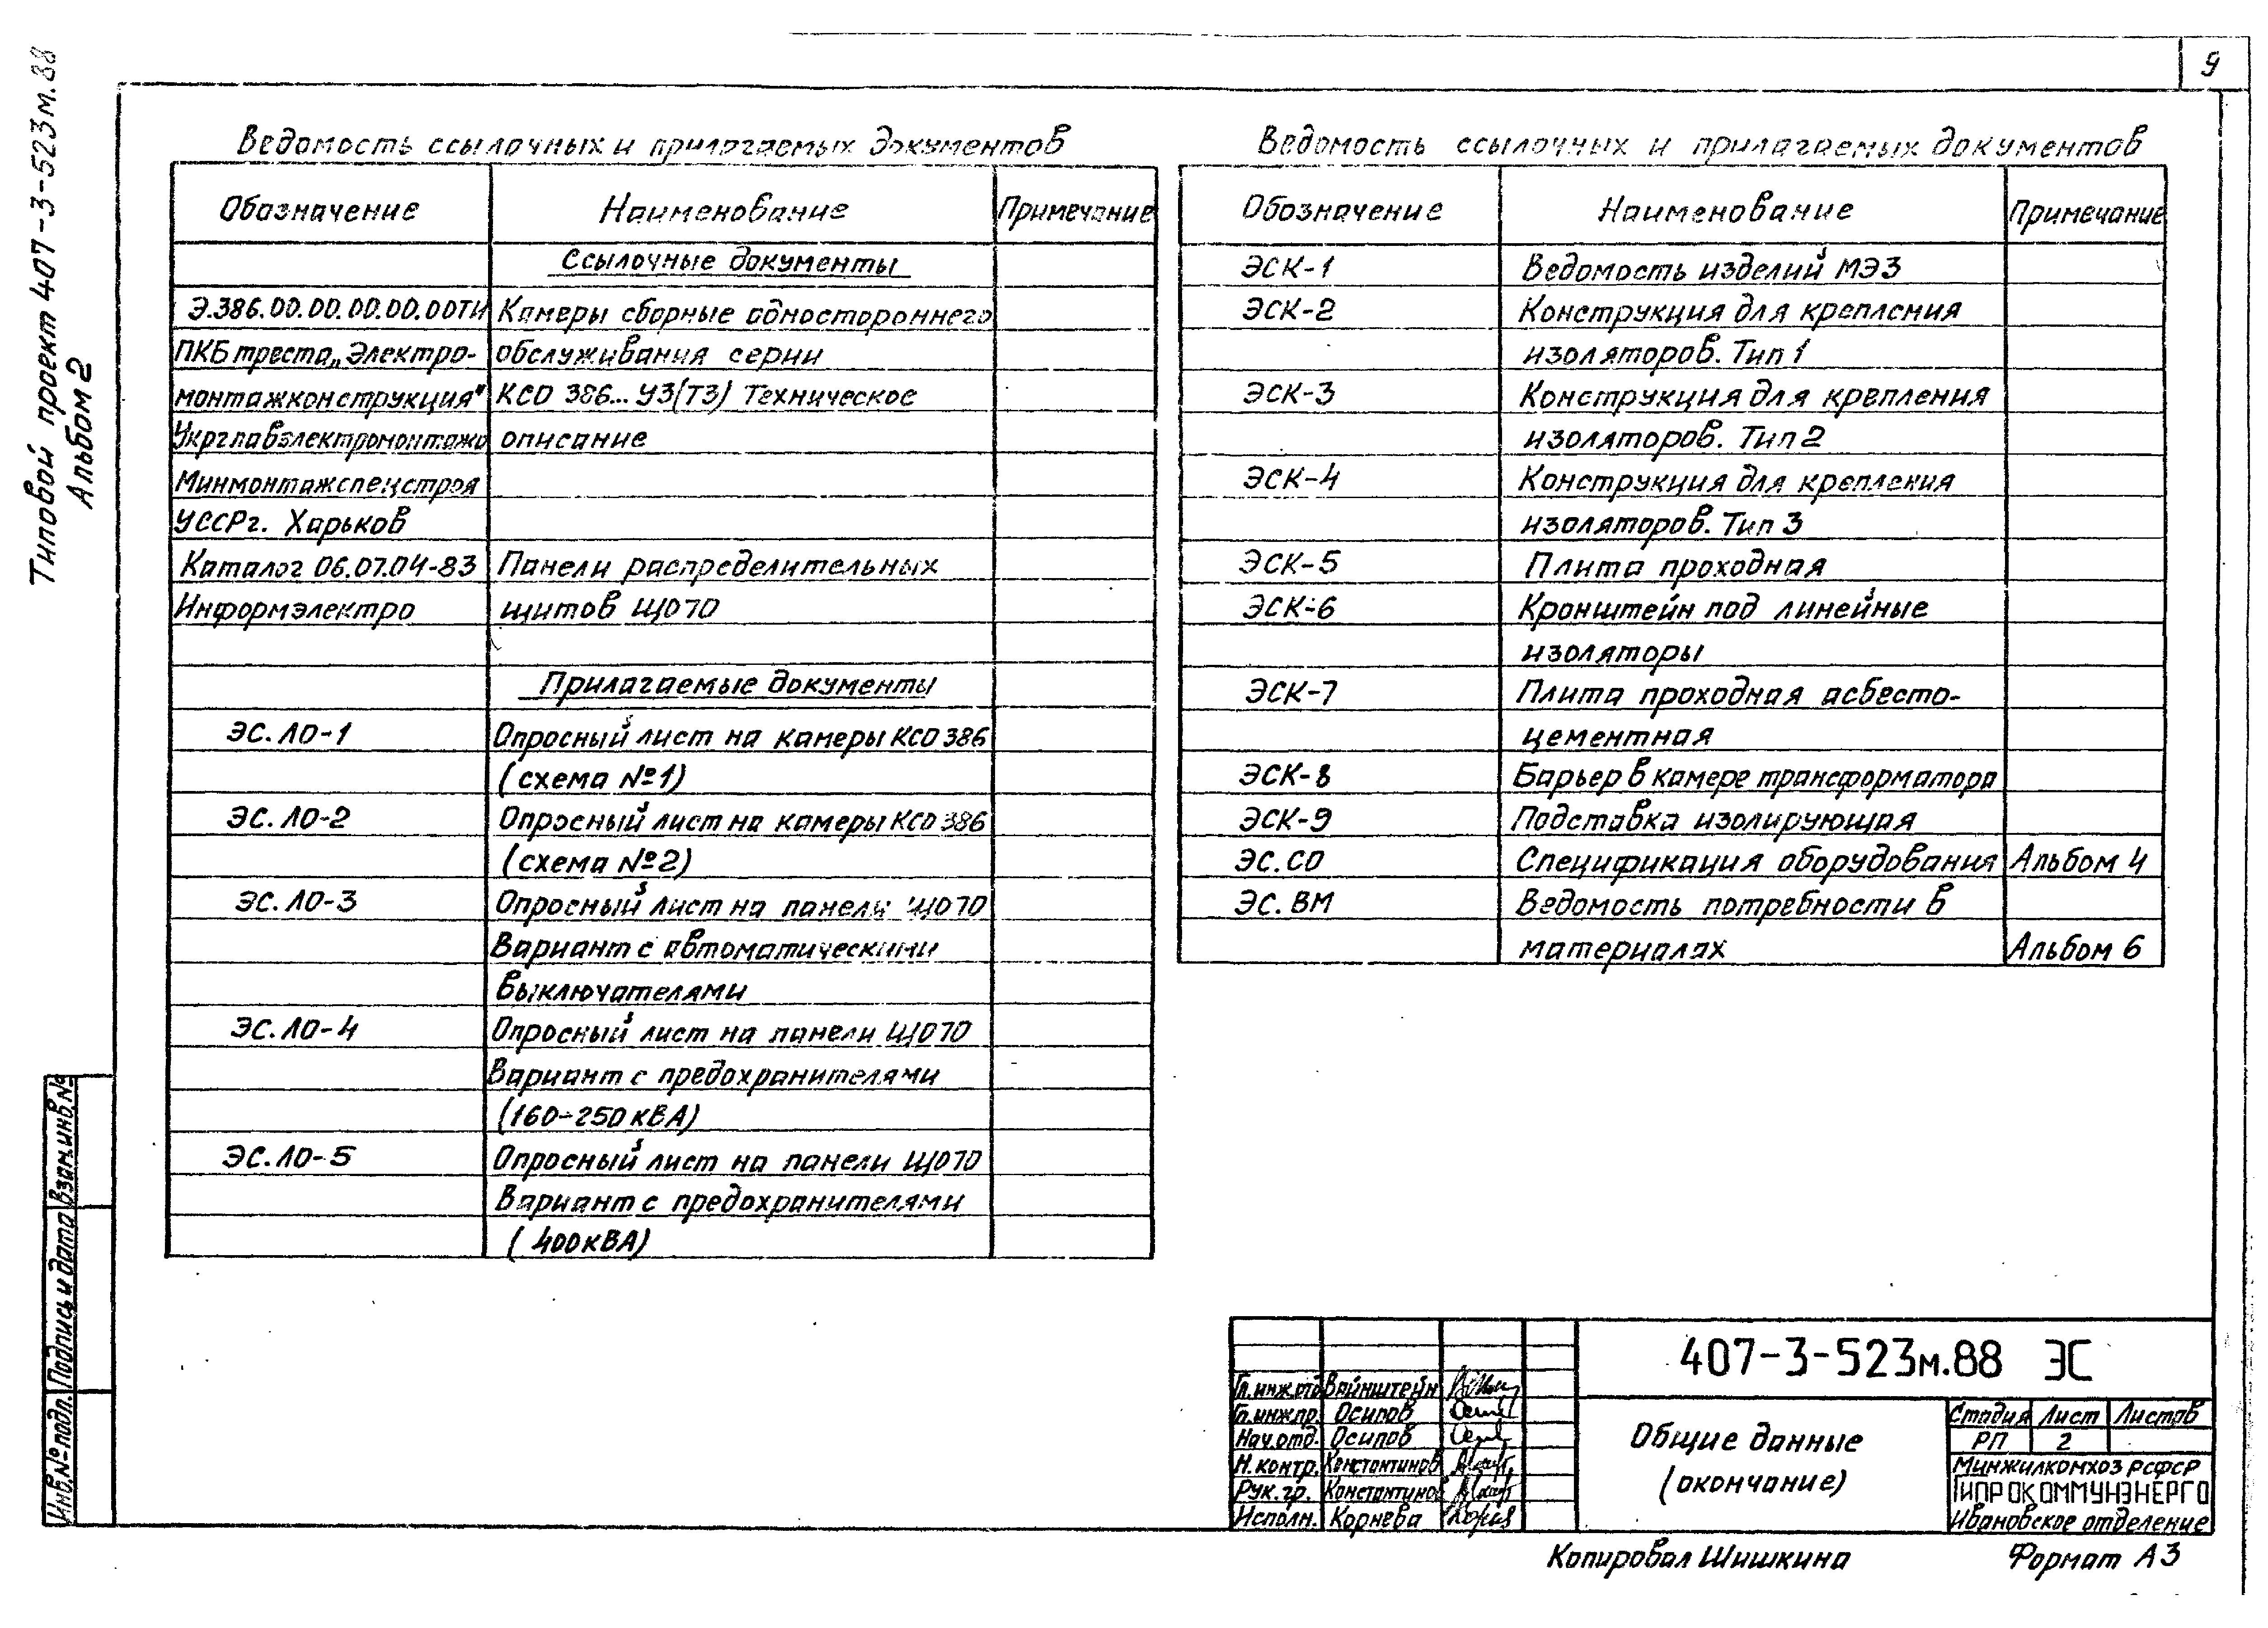 9
Типовой проект 407-3-523м.88
Альбом 2
Ведомость ссылочных и прилагаемых документов
Обозначение Наименование Примечание
Ссылочные документы
Э.386.00.00.00.00.00ТИ Камеры сборные одностороннего
ПКБ треста „Электро- обслуживания серии
монтажконструкция" КСО 386... У3(Т3) Техническое
Укрглавэлектромонтажа описание
Минмонтажспецстроя
УССР г. Харьков
Каталог 06.07.04-83 Панели распределительных
Информэлектро щитов ЩО70
Прилагаемые документы
ЭС.ЛО-1 Опросный лист на камеры КСО 386
(схема №1)
ЭС.ЛО-2 Опросный лист на камеры КСО 386
(схема №2)
ЭС.ЛО-3 Опросный лист на панели ЩО70
Вариант с автоматическими
выключателями
ЭС.ЛО-4 Опросный лист на панели ЩО70
Вариант с предохранителями
(160-250 кВА)
ЭС.ЛО-5 Опросный лист на панели ЩО70
Вариант с предохранителями
(400 кВА)
Ведомость ссылочных и прилагаемых документов
Обозначение Наименование Примечание
ЭСК-1 Ведомость изделий МЭЗ
ЭСК-2 Конструкция для крепления
изоляторов. Тип 1
ЭСК-3 Конструкция для крепления
изоляторов. Тип 2
ЭСК-4 Конструкция для крепления
изоляторов. Тип 3
ЭСК-5 Плита проходная
ЭСК-6 Кронштейн под линейные
изоляторы
ЭСК-7 Плита проходная асбесто-
цементная
ЭСК-8 Барьер в камере трансформатора
ЭСК-9 Подставка изолирующая
ЭС.СО Спецификация оборудования Альбом 4
ЭС.ВМ Ведомость потребности в
материалах Альбом 6
Инв.№ подл. Подпись и дата Взам.инв.№
407-3-523м.88 ЭС
Гл.инж.отд Вайнштейн
Гл.инж.пр. Осипов
Нач.отд. Осипов
Н.контр. Константинов
Рук.гр. Константинов
Исполн. Корнева
Общие данные
(окончание)
Стадия Лист Листов
РП 2
Минжилкомхоз РСФСР
ГИПРОКОММУНЭНЕРГО
Ивановское отделение
Копировал Шишкина Формат А3